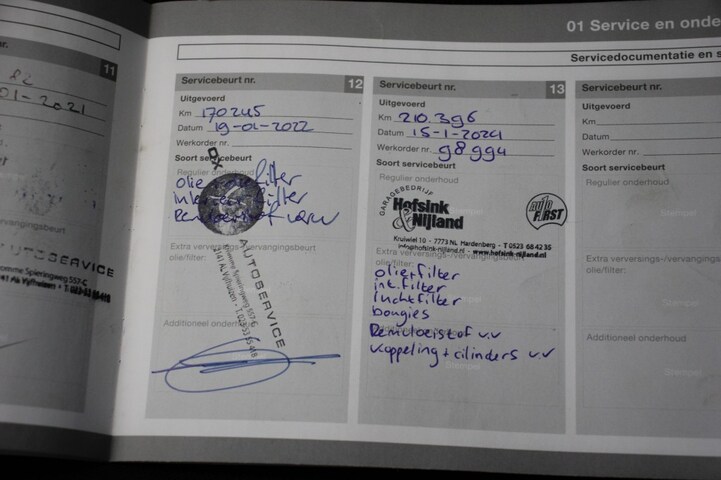 01 Service en onde
Servicedocumentatie en s
nr.
11
01-2021
UTOSERVICE
Servicebeurt nr.
12
Uitgevoerd
Km 170245
Datum 19-01-2022
Werkorder nr.
Soort servicebeurt
Regulier onderhoud
olie filter
filter
AUTOSERVICE
Extra verversings-/vervangingsbeurt
olie/filter:
Additioneel onderhoud
Servicebeurt nr.
13
Uitgevoerd
Km 210.396
Datum 15-1-2024
Werkorder nr. 98994
Soort servicebeurt
Regulier onderhoud
GARAGEBEDRIJF
Hofsink
& Nijland
AUTO FIRST
Kruiwiel 10 - 7773 NL Hardenberg - T 0523 68 42 35
info@hofsink-nijland.nl - www.hofsink-nijland.nl
Extra verversings-/vervangingsbeurt
olie/filter:
olie+filter
int.filter
luchtfilter
bougies
Remvloeistof v.v
Additioneel onderhoud
Koppeling + cilinders v.v
Servicebeurt nr.
Uitgevoerd
Km
Datum
Werkorder nr.
Soort servicebeurt
Regulier onderhoud
Stempel
Extra verversings-/vervangings
olie/filter:
Stempel
Additioneel onderhoud
Stempel